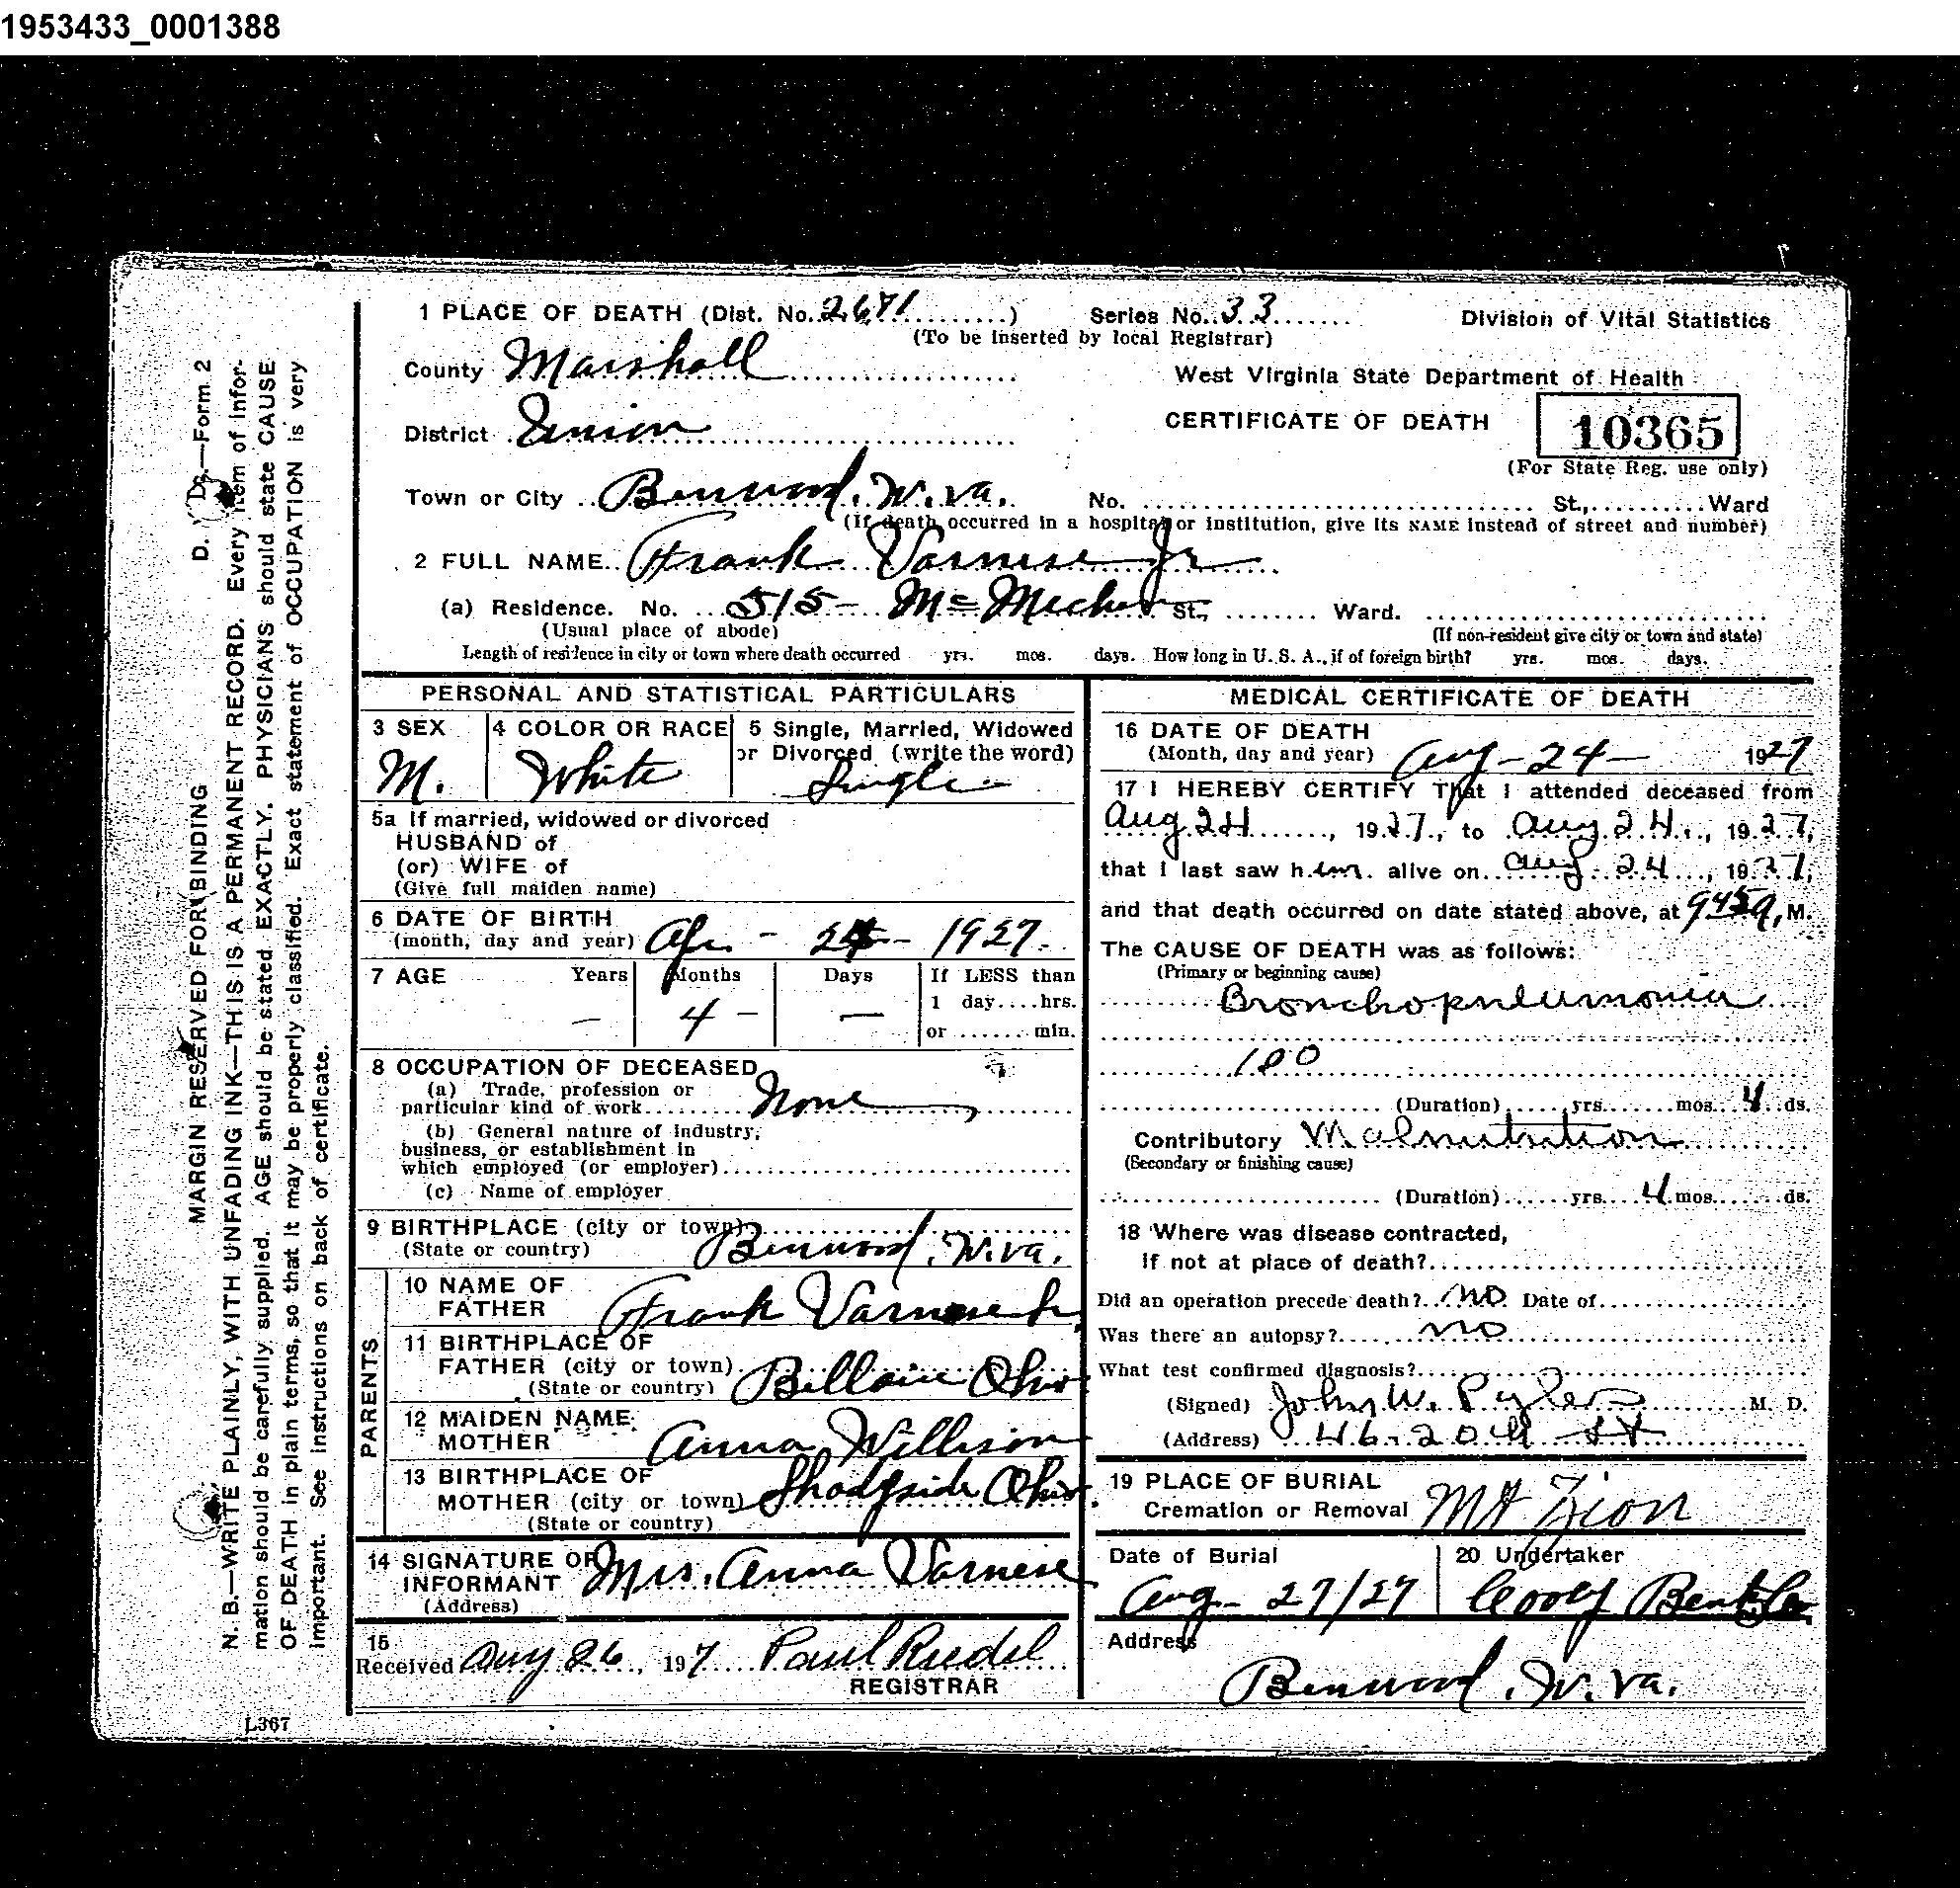 1953433_0001388
1 PLACE OF DEATH (Dist. No. 2671) Series No. 33 Division of Vital Statistics
(To be inserted by local Registrar)
County Marshall West Virginia State Department of Health
District Union CERTIFICATE OF DEATH 10365
(For State Reg. use only)
Town or City Benwood, W.Va. No. St., Ward
(If death occurred in a hospital or institution, give its NAME instead of street and number)
2 FULL NAME Frank Varnese Jr
(a) Residence. No. 515- McMechen St., Ward.
(Usual place of abode) (If non-resident give city or town and state)
Length of residence in city or town where death occurred yrs. mos. days. How long in U. S. A., if of foreign birth? yrs. mos. days.
PERSONAL AND STATISTICAL PARTICULARS
3 SEX 4 COLOR OR RACE 5 Single, Married, Widowed
or Divorced (write the word)
M. White Single
5a If married, widowed or divorced
HUSBAND of
(or) WIFE of
(Give full maiden name)
6 DATE OF BIRTH
(month, day and year) Apr - 24 - 1927.
7 AGE Years Months Days If LESS than
1 day....hrs.
— 4 - — or ...... min.
8 OCCUPATION OF DECEASED
(a) Trade, profession or
particular kind of work None
(b) General nature of industry,
business, or establishment in
which employed (or employer)
(c) Name of employer
9 BIRTHPLACE (city or town)
(State or country) Benwood, W.Va.
PARENTS
10 NAME OF
FATHER Frank Varnese
11 BIRTHPLACE OF
FATHER (city or town)
(State or country) Bellaire Ohio
12 MAIDEN NAME
MOTHER Anna Willison
13 BIRTHPLACE OF
MOTHER (city or town) Shadyside Ohio
(State or country)
14 SIGNATURE OF
INFORMANT Mrs. Anna Varnese
(Address)
15
Received Aug 26, 197 Paul Riedel
REGISTRAR
MEDICAL CERTIFICATE OF DEATH
16 DATE OF DEATH
(Month, day and year) Aug - 24 - 1927
17 I HEREBY CERTIFY That I attended deceased from
Aug 24, 1927, to Aug 24, 1927,
that I last saw him alive on Aug 24, 1927,
and that death occurred on date stated above, at 945a, M.
The CAUSE OF DEATH was as follows:
(Primary or beginning cause)
Bronchopneumonia
100
(Duration) yrs. mos. 4 ds.
Contributory Malnutrition
(Secondary or finishing cause)
(Duration) yrs. 4 mos. ds.
18 Where was disease contracted,
If not at place of death?
Did an operation precede death? no Date of
Was there an autopsy? no
What test confirmed diagnosis?
(Signed) John W. Pyles M. D.
(Address) 46-20th St
19 PLACE OF BURIAL
Cremation or Removal Mt Zion
Date of Burial 20 Undertaker
Aug - 27/27 Cooey Bentz Co
Address
Benwood, W.Va.
D. Ds.—Form 2
MARGIN RESERVED FOR BINDING
N. B.—WRITE PLAINLY, WITH UNFADING INK—THIS IS A PERMANENT RECORD. Every item of infor-
mation should be carefully supplied. AGE should be stated EXACTLY. PHYSICIANS should state CAUSE
OF DEATH in plain terms, so that it may be properly classified. Exact statement of OCCUPATION is very
important. See instructions on back of certificate.
L367